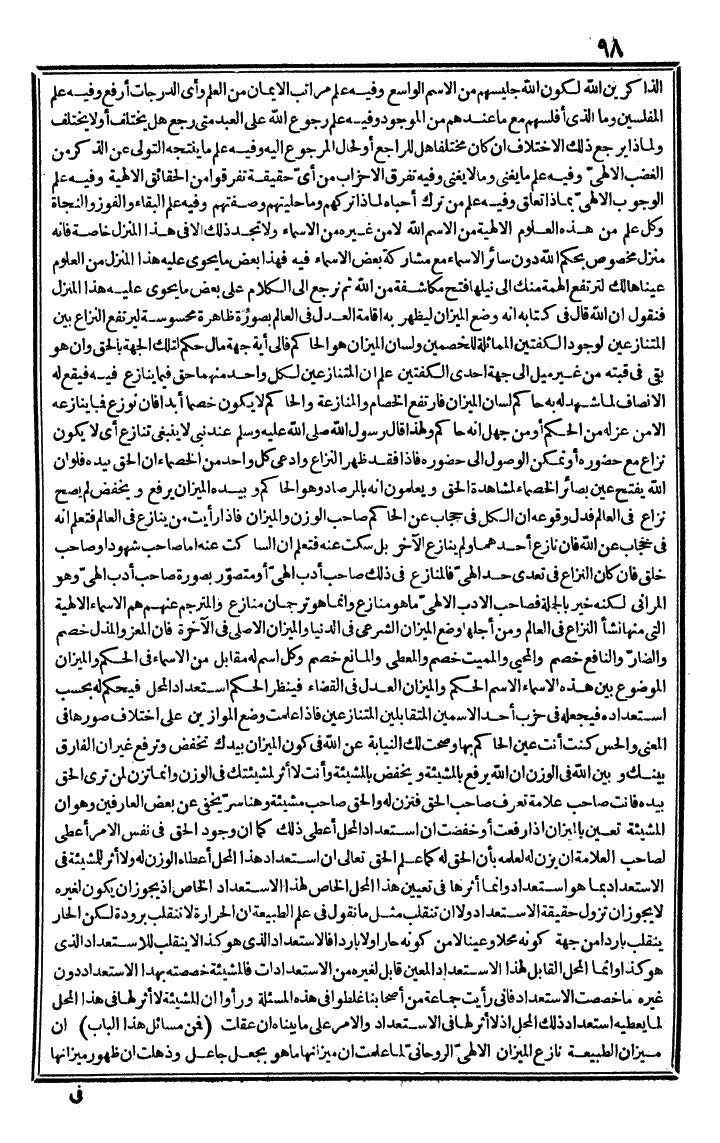 ٩٨
الذاكرين الله لكون الله جليسهم من الاسم الواسع وفيه علم مراتب الايمان من العلم وأى الدرجات أرفع وفيه علم
المفلسين وما الذى أفلسهم مع ماعندهم من الموجود وفيه علم رجوع الله على العبد متى رجع هل يختلف أولا يختلف
ولماذا يرجع ذلك الاختلاف ان كان مختلفا هل للراجع أو لحال المرجوع اليه وفيه علم ماينتجه التولى عن الذكر من
الغضب الالهىّ وفيه علم مايغنى ومالايغنى وفيه تفرق الاحزاب من أىّ حقيقة تفرقوا من الحقائق الالهية وفيه علم
الوجوب الالهىّ بماذا تعلق وفيه علم من ترك أحباه لماذا تركهم وماحليتهم وصفتهم وفيه علم البقاء والفوز والنجاة
وكل علم من هذه العلوم الالهية من الاسم الله لا من غيره من الاسماء ولاتجد ذلك الا فى هذا المنزل خاصة فانه
منزل مخصوص بحكم الله دون سائر الاسماء مع مشاركة بعض الاسماء فيه فهذا بعض مايحوى عليه هذا المنزل من العلوم
عيناها لك لترتفع الهمة منك الى نيلها فتح مكاشفة من الله ثم نرجع الى الكلام على بعض مايحوى عليه هذا المنزل
فنقول ان الله قال فى كتابه انه وضع الميزان ليظهر به اقامة العدل فى العالم بصورة ظاهرة محسوسة ليرتفع النزاع بين
المتنازعين لوجود الكفتين المماثلة للخصمين ولسان الميزان هو الحاكم فالى أية جهة مال حكم لتلك الجهة بالحق وان هو
بقى فى قبته من غير ميل الى جهة احدى الكفتين علم ان المتنازعين لكل واحد منهما حق فيما ينازع فيه فيقع له
الانصاف لماشهد له به حاكم لسان الميزان فارتفع الخصام والمنازعة والحاكم لايكون خصما أبدا فان نوزع فماينازعه
الا من عزله من الحكم أو من جهل انه حاكم ولهذا قال رسول الله صلى الله عليه وسلم عند نبى لاينبغى تنازع أى لا يكون
نزاع مع حضوره أو تمكن الوصول الى حضوره فاذا فقد ظهر النزاع وادعى كل واحد من الخصماء ان الحق بيده فلو ان
الله يفتح عين بصائر الخصماء لمشاهدة الحق ويعلمون انه بالمرصاد وهو الحاكم وبيده الميزان يرفع ويخفض لم يصح
نزاع فى العالم فدل وقوعه ان الكل فى حجاب عن الحاكم صاحب الوزن والميزان فاذا رأيت من ينازع فى العالم فتعلم انه
فى حجاب عن الله فان نازع أحدهما ولم ينازع الآخر بل سكت عنه فتعلم ان الساكت عنه اما صاحب شهود او صاحب
خلق فان كان النزاع فى تعدى حد الهىّ فالمنازع فى ذلك صاحب أدب الهىّ أو متصوّر بصورة صاحب أدب الهىّ وهو
المرائى لكنه خير بالجملة فصاحب الادب الالهىّ ماهو منازع وانما هو ترجمان منازع والمترجم عنهم هم الاسماء الالهية
التى منها نشأ النزاع فى العالم ومن أجلها وضع الميزان الشرعى فى الدنيا والميزان الاصلى فى الآخرة فان المعز والمذل خصم
والضارّ والنافع خصم والمحيى والمميت خصم والمعطى والمانع خصم وكل اسم له مقابل من الاسماء فى الحكم والميزان
الموضوع بين هذه الاسماء الاسم الحكم والميزان العدل فى القضاء فينظر الحكم استعداد المحل فيحكم له بحسب
استعداده فيجعله فى حزب أحد الاسمين المتقابلين المتنازعين فاذا علمت وضع الموازين على اختلاف صورها فى
المعنى والحس كنت أنت عين الحاكم بها وصحت لك النيابة عن الله فى كون الميزان بيدك تخفض وترفع غير ان الفارق
بينك وبين الله فى الوزن ان الله يرفع بالمشيئة ويخفض بالمشيئة وأنت لاأثر لمشيئتك فى الوزن وانماتزن لمن ترى الحق
بيده فانت صاحب علامة تعرف صاحب الحق فتزن له والحق صاحب مشيئة وهنا سرّ يخفى عن بعض العارفين وهو ان
المشيئة تعين بالميزان اذا رفعت أو خفضت ان استعداد المحل أعطى ذلك كما ان وجود الحق فى نفس الامر أعطى
لصاحب العلامة ان يزن له لعلمه بأن الحق له كما علم الحق تعالى ان استعداد هذا المحل أعطاه الوزن له ولا أثر للمشيئة فى
الاستعداد بما هو استعداد وانما أثرها فى تعيين هذا المحل الخاص لهذا الاستعداد الخاص اذ يجوز ان يكون لغيره
لايجوز ان تزول حقيقة الاستعداد ولا ان تنقلب مثل مانقول فى علم الطبيعة ان الحرارة لاتنقلب برودة لكن الحار
ينقلب باردا من جهة كونه محلا وعينا لا من كونه حارا ولا باردا فالاستعداد الذى هو كذا لاينقلب للاستعداد الذى
هو كذا وانما المحل القابل لهذا الاستعداد المعين قابل لغيره من الاستعدادات فالمشيئة خصصته بهذا الاستعداد دون
غيره ماخصصت الاستعداد فانى رأيت جماعة من أصحابنا غلطوا فى هذه المسئلة ورأوا ان المشيئة لا أثر لها فى هذا المحل
لمايعطيه استعداد ذلك المحل اذ لا أثر لها فى الاستعداد والامر على مابيناه ان عقلت (فمن مسائل هذا الباب) ان
ميزان الطبيعة نازع الميزان الالهىّ الروحانىّ لماعلمت ان ميزانها ماهو بجعل جاعل وذهلت ان ظهور ميزانها
فى